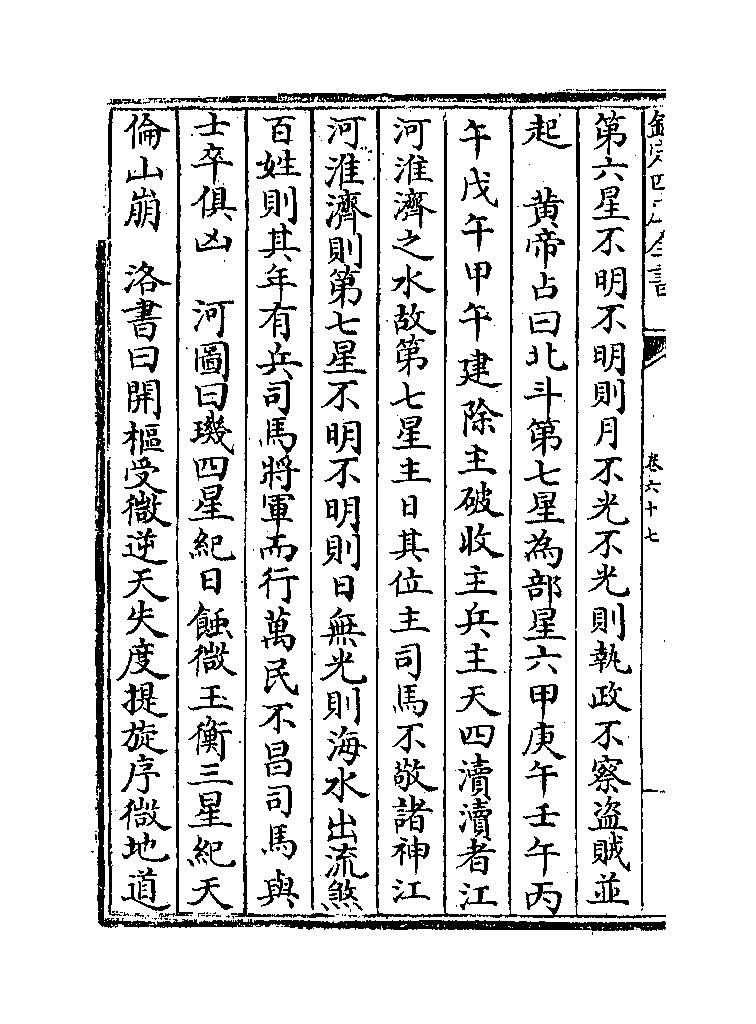 欽定四庫全書
卷六十七
第六星不明不明則月不光不光則執政不察盜賊並
起　黄帝占曰北斗第七星為部星六甲庚午壬午丙
午戊午甲午建除主破收主兵主天四瀆瀆者江
河淮濟之水故第七星主日其位主司馬不敬諸神江
河淮濟則第七星不明不明則日無光則海水出流煞
百姓則其年有兵司馬將軍而行萬民不昌司馬與
士卒俱凶　河圖曰璣四星紀日蝕微玉衡三星紀天
倫山崩　洛書曰開樞受微逆天失度提旋序微地道